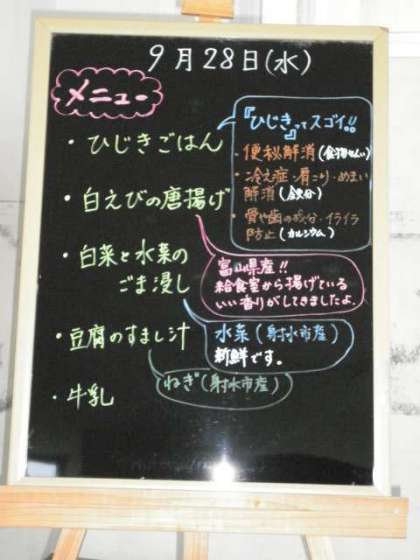 9月28日(水)
メニュー
・ひじきごはん
『ひじき』ってスゴイ!!
・便秘解消(食物せんい)
・冷え症・肩こり・めまい
解消(鉄分)
・骨や歯の
・イライラ
防止(カルシウム)
・白えびの唐揚げ
富山県産!!
給食室から揚げている
いい香りがしてきましたよ。
・白菜と水菜の
ごま浸し
水菜(射水市産)
新鮮です。
・豆腐のすまし汁
ねぎ(射水市産)
・牛乳